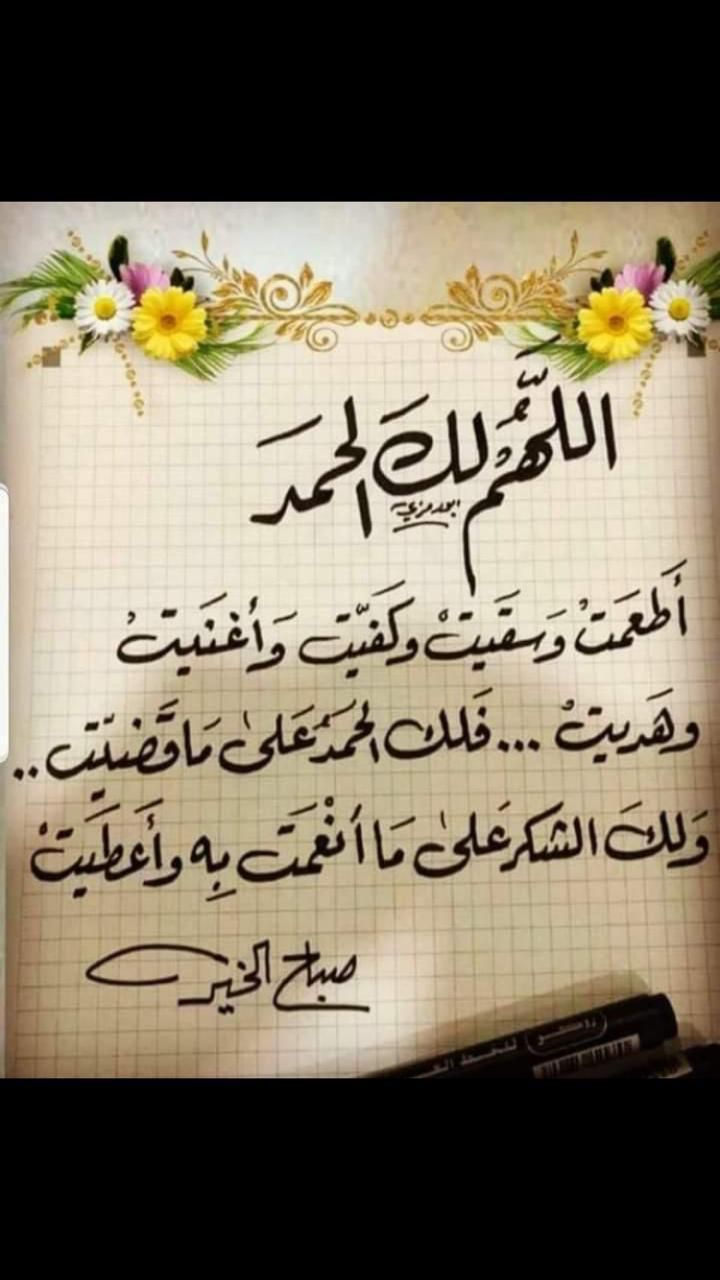 اللَّهُم لك الحمد
أَطعَمتْ وسقَيتْ وكفَيّت وَأغنَيتْ
وهَديتْ ... فَلك الحمَدُ عَلىٰ مَا قَضيّت ..
وَلكَ الشكر عَلىٰ مَا أنْعَمَت بِه وأَعَطَيتْ
صباح الخير
روكو
للخط